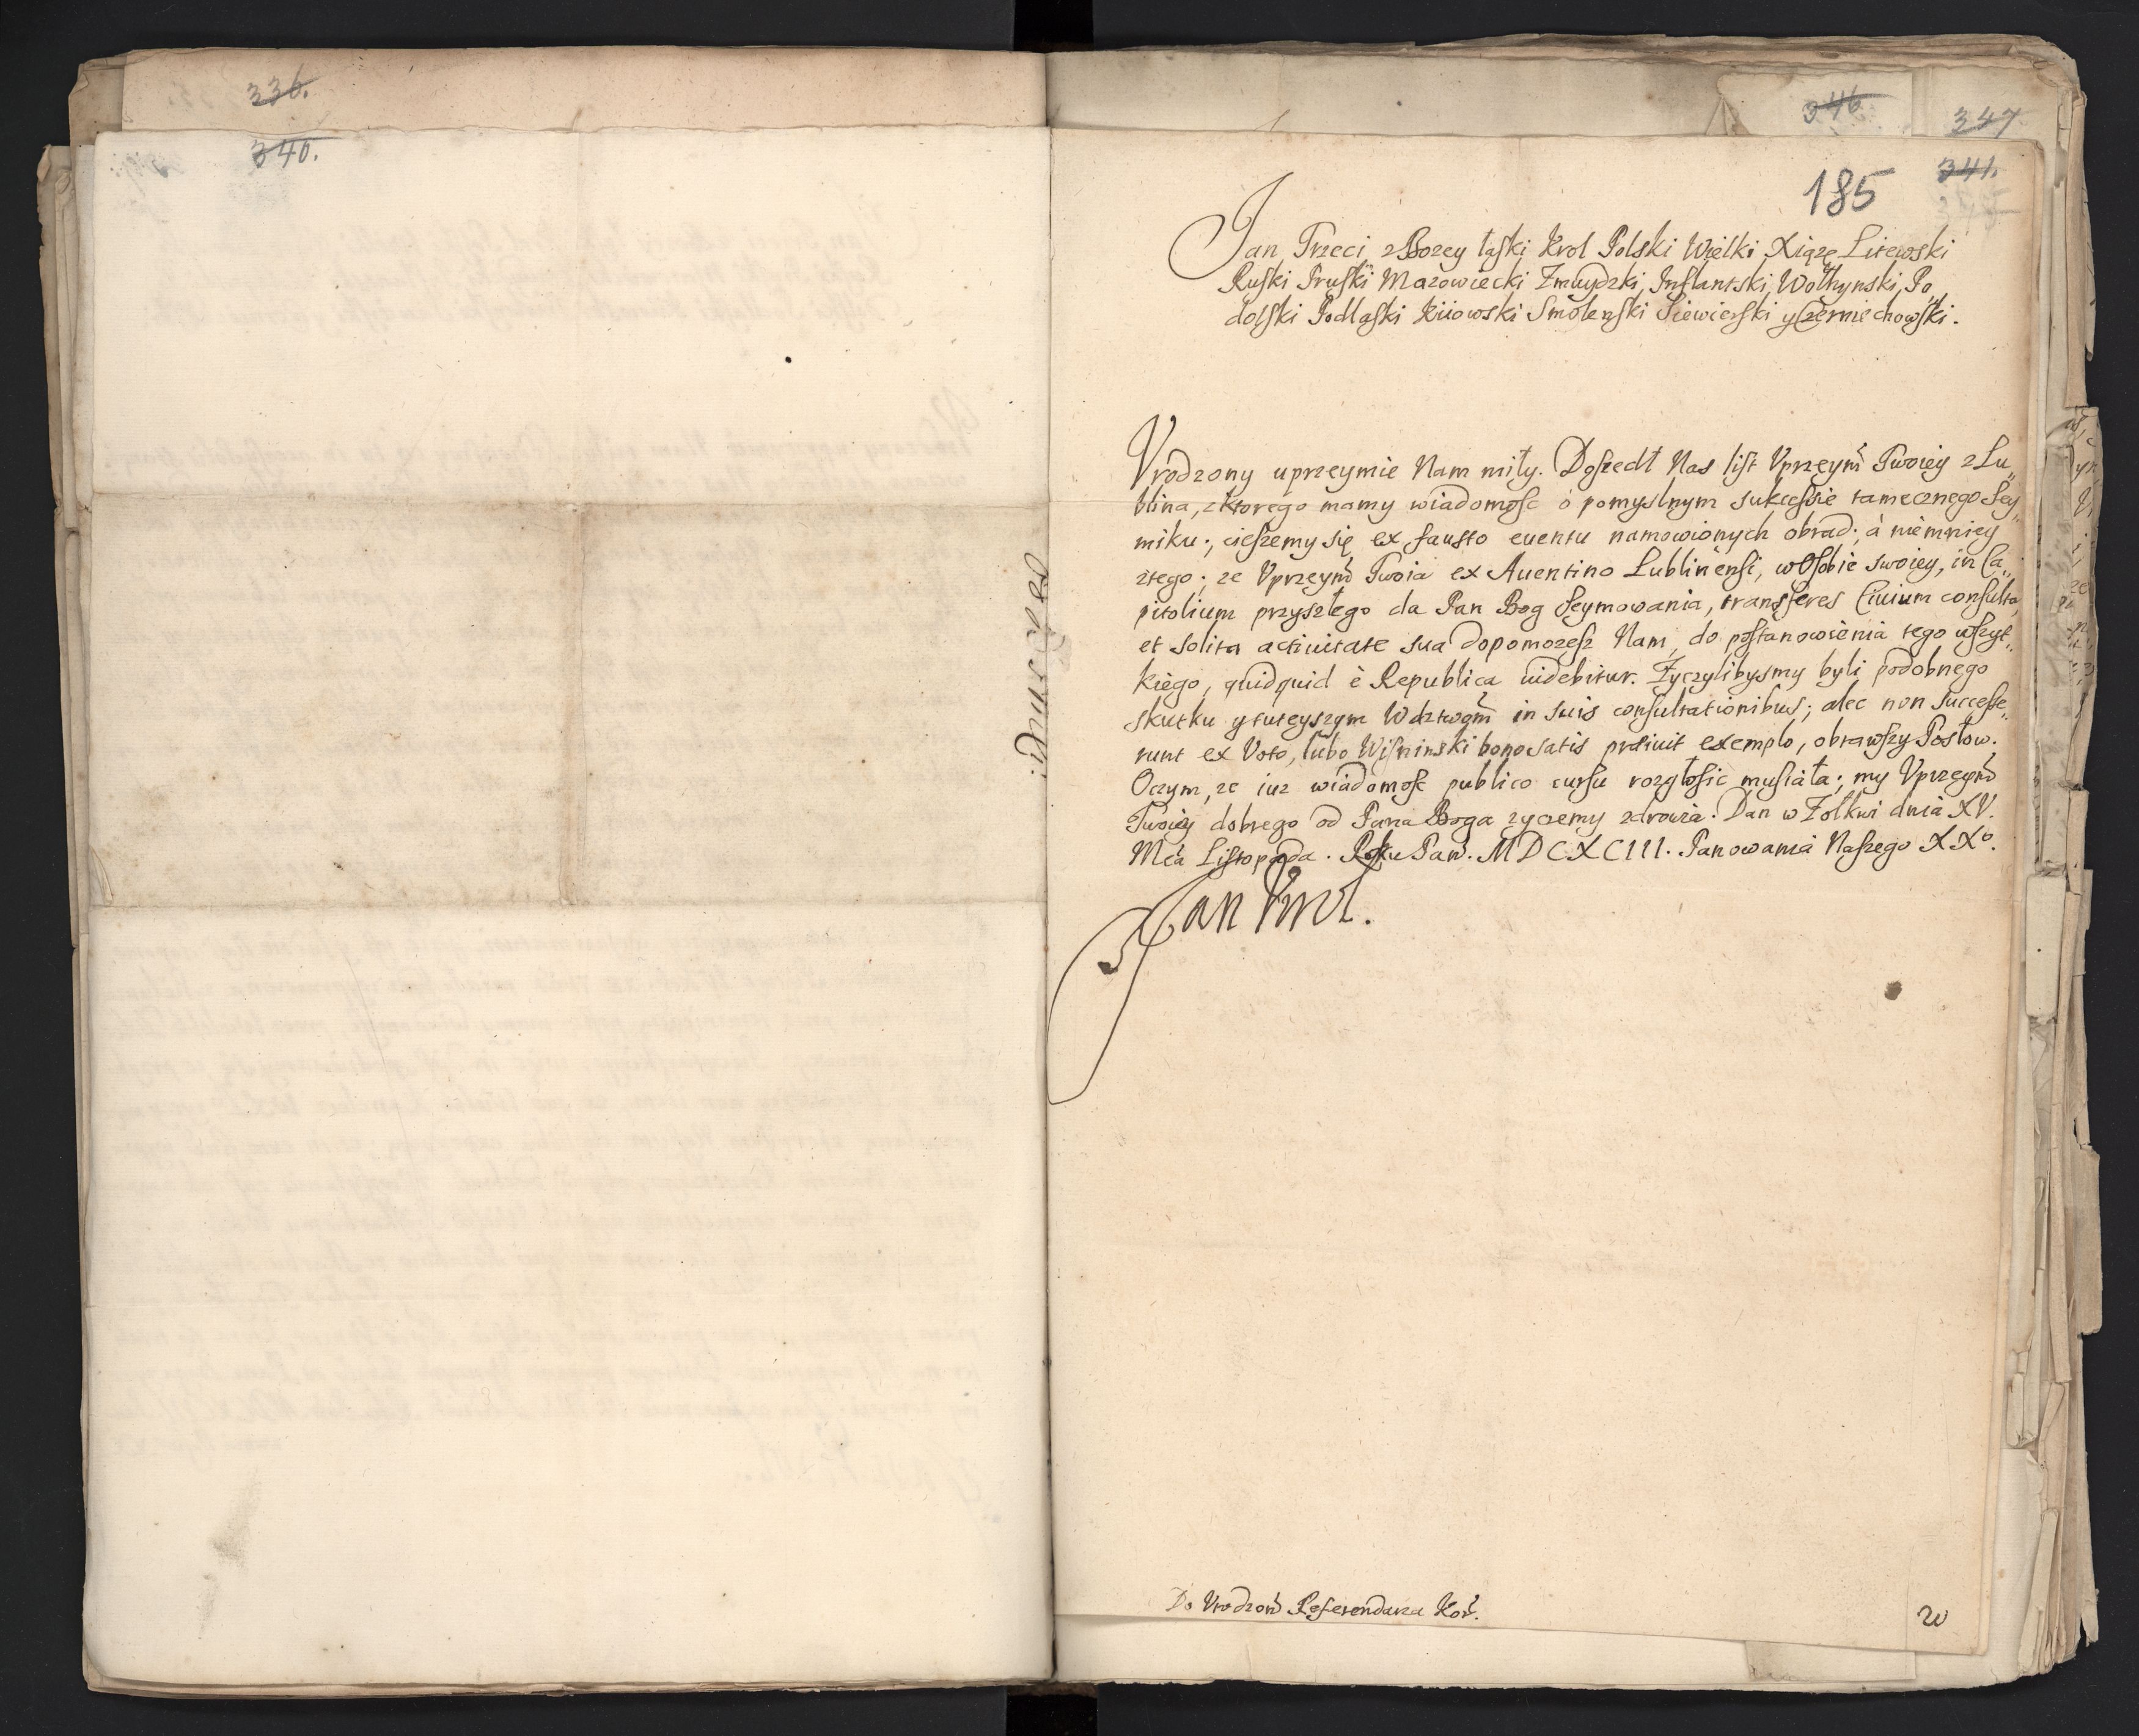 336.
340.
346
347
341.
185
Jan Trzeci, z Bozey łaski Krol Polski Wielki Xiąze Litewski
Ruski Pruski Mazowiecki Zmuydzki, Inflantski, Wołhynski, Po„
dolski Podlaski Kiiowski Smolenski Siewierski y Czerniechowski.
Vrodzony uprzeymie Nam miły. Doszedł Nas list Vprzeym̃ Twoiey z Lu„
blina, z ktorego mamy wiadomosc o pomyslnym sukcessie tamecznego Sey„
miku; cieszemy się ex fausto euentu namowionych obrad; à niemniey
ztego; ze Vprzeym̃ Twoia ex Auentino Lublinensi, w Osobie swoiey, in Ca„
pitolium przyszłego da Pan Bog Seymowania, transferes Ciuium consulta,
et solita actiuitate sua dopomozesz Nam, do postanowienia tego wszyt„
kiego, quidquid è Republica uidebitur. Zyczylibysmy byli podobnego
skutku y tuteyszym Wdztwom̃ in suis consultationibus; alec non successe„
runt ex Voto, lubo Wiszninski bono satis praeiuit exemplo, obrawszy Posłow.
Oczym, ze iuz wiadomosc publico cursu rozgłosic musiała; my Vprzeym̃
Twoiey dobrego od Pana Boga zyczemy zdrowia. Dan w Zołkwi dnia XV.
Mca Listopada. Roku Pan̄. MDCXCIII. Panowania Naszego XXº.
Jan Krol.
Do Vrodzon̄ Referendarza Kor̃.
20